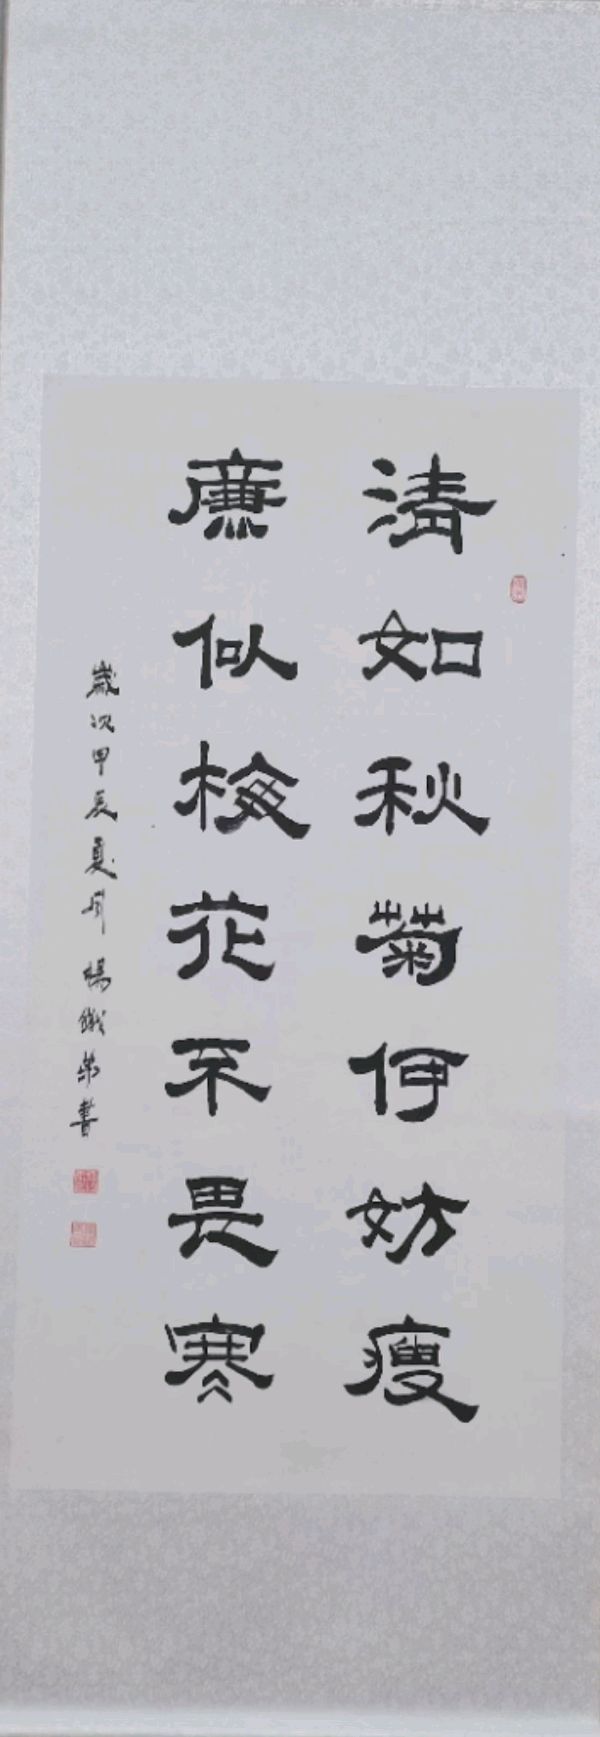 清如秋菊何妨瘦
廉似梅花不畏寒
歲次甲辰夏月楊鐵榮書